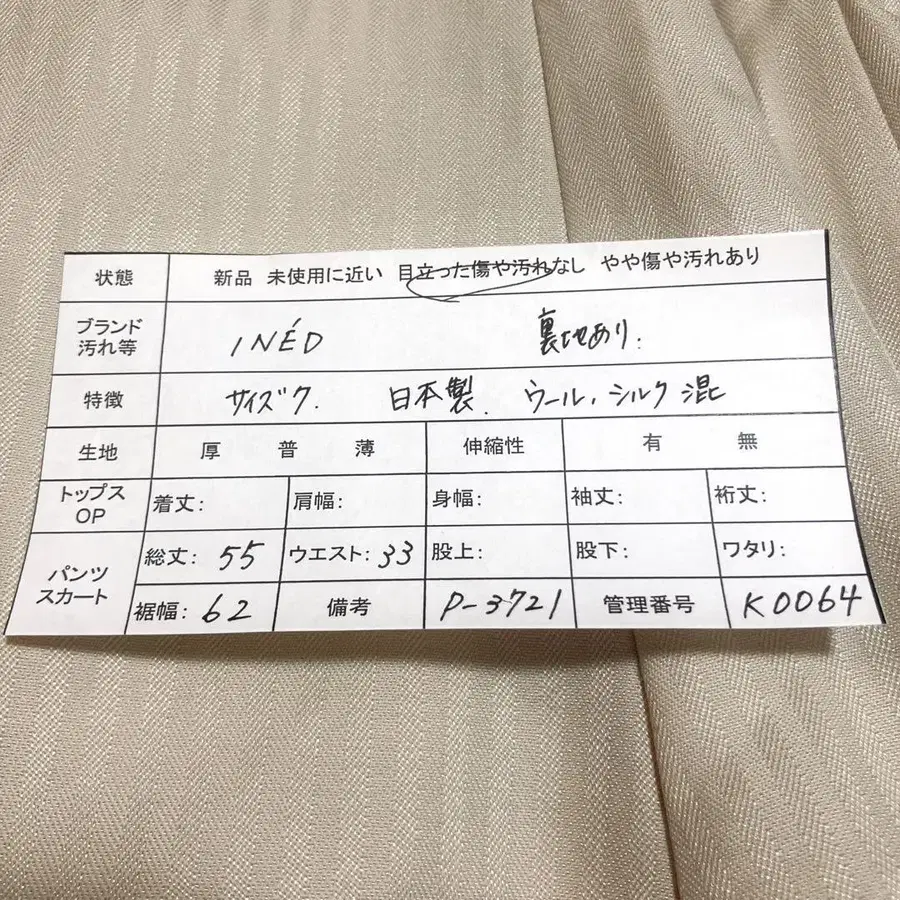 状態 新品 未使用に近い 目立った傷や汚れなし やや傷や汚れあり
ブランド
汚れ等 INÉD 裏地あり.
特徴 サイズ7. 日本製. ウール、シルク混
生地 厚 普 薄 伸縮性 有 無
トップス
OP 着丈: 肩幅: 身幅: 袖丈: 裄丈:
パンツ
スカート 総丈: 55 ウエスト: 33 股上: 股下: ワタリ:
裾幅: 62 備考 P-3721 管理番号 K0064